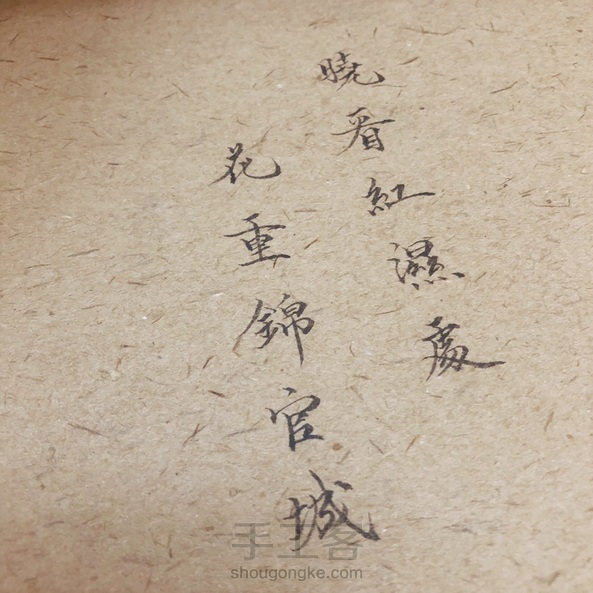 曉看紅濕處
花重錦官城
手工客
shougongke.com